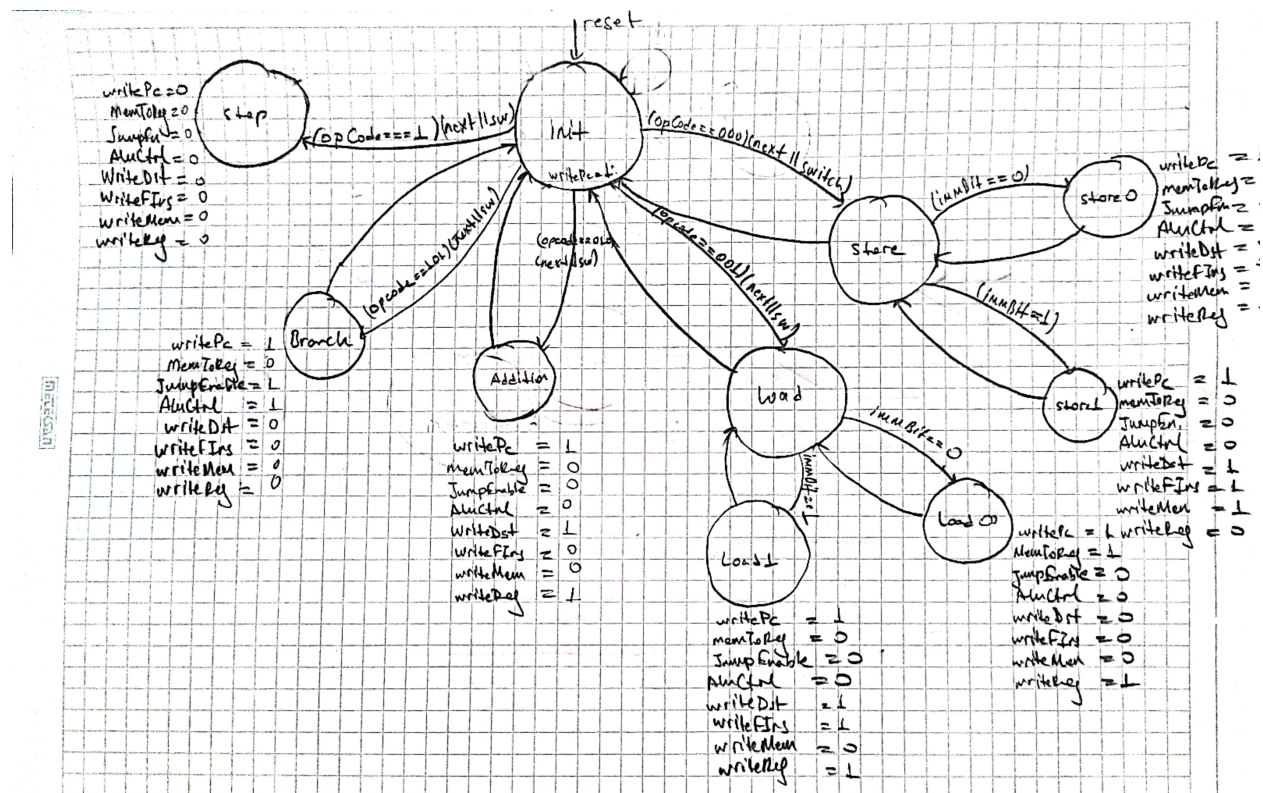 reset
Init
writePc=1
stop
writePc=0
MemToReg=0
JumpEn=0
AluCtrl=0
WriteDst=0
WriteFIns=0
writeMem=0
writeReg=0
(opCode===1)(next||sw)
(opCode==000)(next||switch)
(opcode==001)(next||sw)
(opcode==010)
(next||sw)
(opcode==101)(next||sw)
store
(immBit==0)
store0
writePc
memToReg=
JumpEn=
AluCtrl=
writeDst=
writeFIns=
writeMem=
writeReg=
(immBit=1)
store1
writePc = 1
memToReg = 0
JumpEn. = 0
AluCtrl = 0
writeDst = 1
writeFIns = 1
writeMem = 1
writeReg = 0
Branch
writePc = 1
MemToReg = 0
JumpEnable = 1
AluCtrl = 1
writeDst = 0
writeFIns = 0
writeMem = 0
writeReg = 0
Addition
writePc = 1
memToReg = 0
JumpEnable = 0
AluCtrl = 0
WriteDst = 1
writeFIns = 0
writeMem = 0
writeReg = 1
Load
immBit==0
immBit==1
Load1
writePc = 1
memToReg = 0
JumpEnable = 0
AluCtrl = 0
writeDst = 1
writeFIns = 1
writeMem = 0
writeReg = 1
Load 0
writePc = 1
MemToReg = 1
JumpEnable = 0
AluCtrl = 0
writeDst = 0
writeFIns = 0
writeMem = 0
writeReg = 1